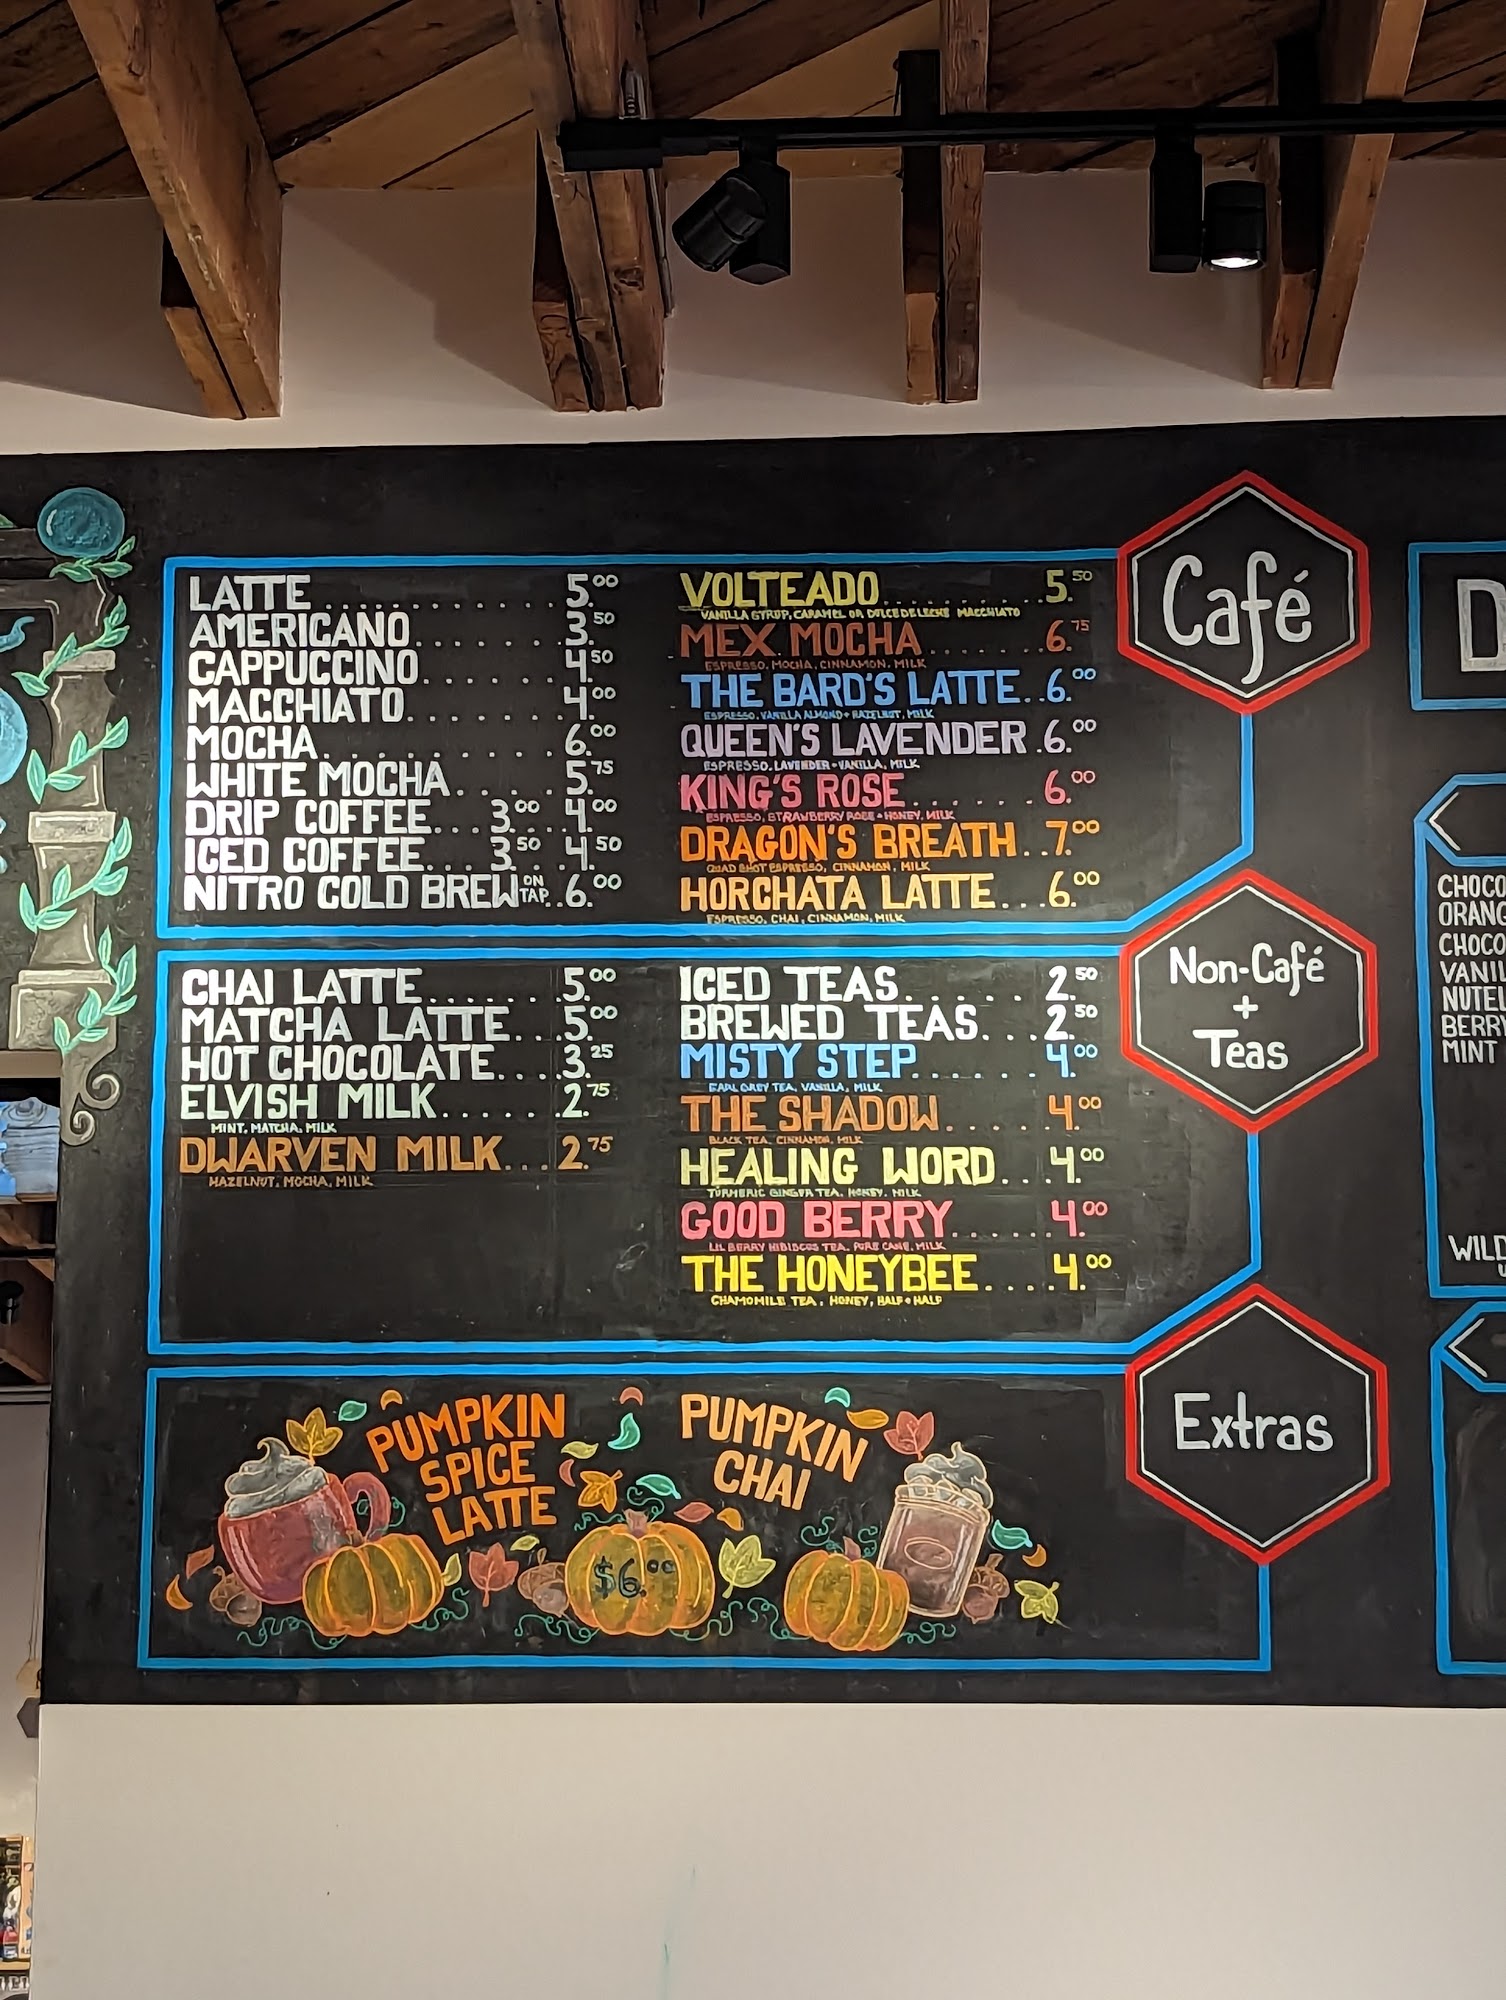 Café
LATTE 5.00
AMERICANO 3.50
CAPPUCCINO 4.50
MACCHIATO 4.00
MOCHA 6.00
WHITE MOCHA 5.75
DRIP COFFEE 3.00 4.00
ICED COFFEE 3.50 4.50
NITRO COLD BREW ON TAP 6.00
VOLTEADO 5.50
VANILLA SYRUP, CARAMEL OR DULCE DE LECHE MACCHIATO
MEX MOCHA 6.75
ESPRESSO, MOCHA, CINNAMON, MILK
THE BARD'S LATTE 6.00
ESPRESSO, VANILLA ALMOND + HAZELNUT, MILK
QUEEN'S LAVENDER 6.00
ESPRESSO, LAVENDER + VANILLA, MILK
KING'S ROSE 6.00
ESPRESSO, STRAWBERRY ROSE + HONEY, MILK
DRAGON'S BREATH 7.00
QUAD SHOT ESPRESSO, CINNAMON, MILK
HORCHATA LATTE 6.00
ESPRESSO, CHAI, CINNAMON, MILK
Non-Café
+
Teas
CHAI LATTE 5.00
MATCHA LATTE 5.00
HOT CHOCOLATE 3.25
ELVISH MILK 2.75
MINT, MATCHA, MILK
DWARVEN MILK 2.75
HAZELNUT, MOCHA, MILK
ICED TEAS 2.50
BREWED TEAS 2.50
MISTY STEP 4.00
EARL GREY TEA, VANILLA, MILK
THE SHADOW 4.00
BLACK TEA, CINNAMON, MILK
HEALING WORD 4.00
TURMERIC GINGER TEA, HONEY, MILK
GOOD BERRY 4.00
LIL BERRY HIBISCUS TEA, PURE CANE, MILK
THE HONEYBEE 4.00
CHAMOMILE TEA, HONEY, HALF + HALF
Extras
PUMPKIN
SPICE
LATTE
PUMPKIN
CHAI
$6.00
D
CHOCO
ORANG
CHOCO
VANIL
NUTEL
BERRY
MINT
WILD